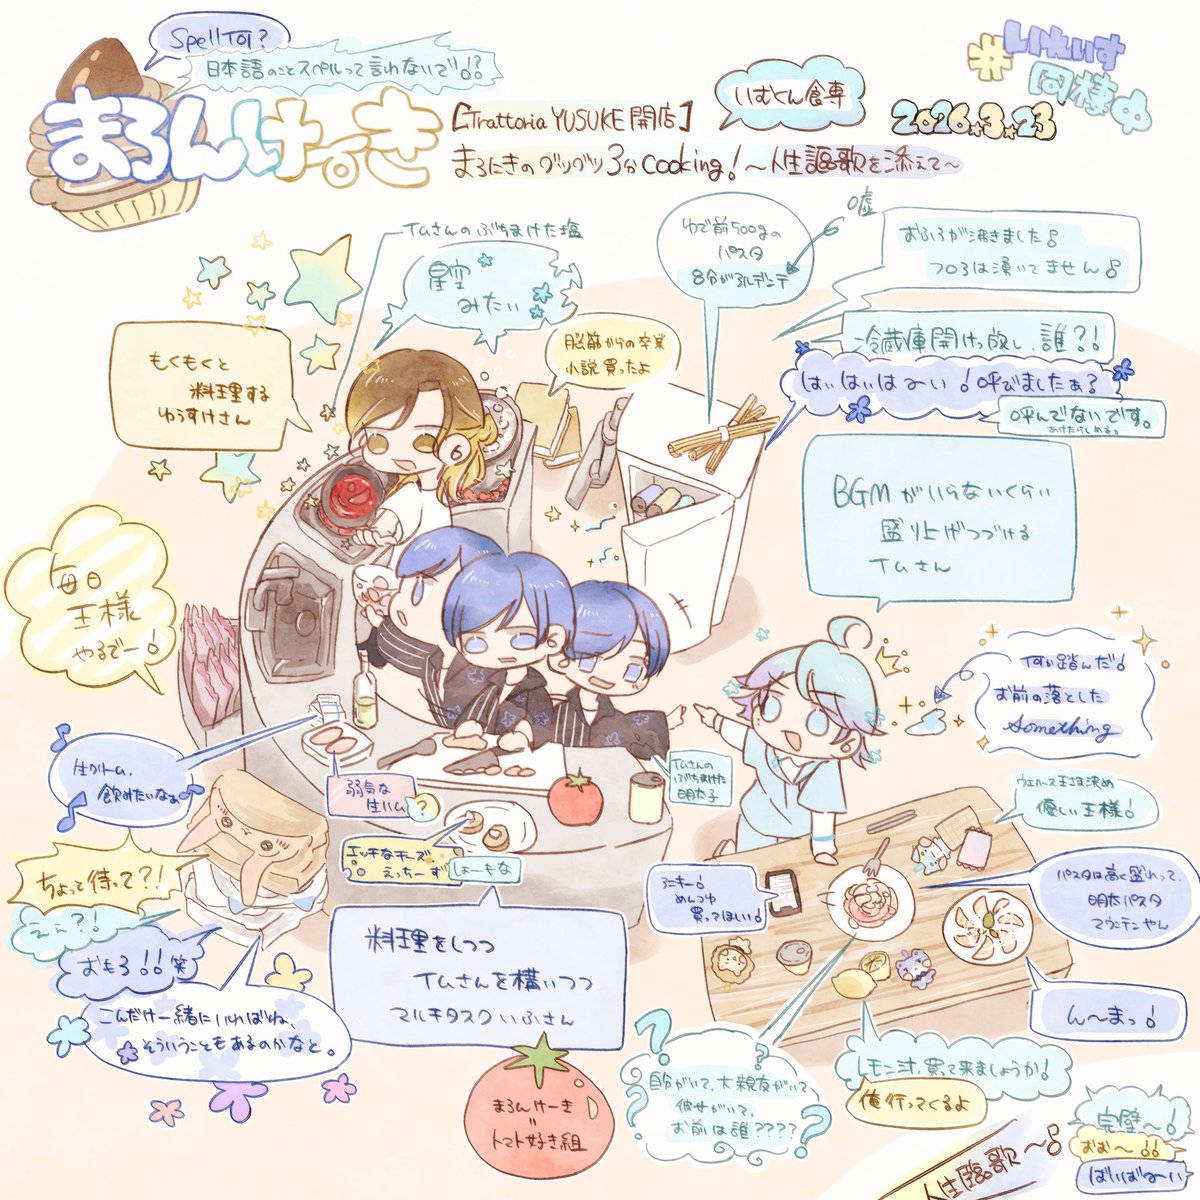 Spellての?
日本語のことスペルって言わないで!!?
まろんけーき
【Trattoria YUSUKE 開店】
いむくん食専
2026.3.23
#いれいす
同棲中
まろにきのグツグツ3分cooking!〜人生謳歌を添えて〜
イムさんのぶちまけた塩
星空
みたい
ゆで前500gの
パスタ
8分がアルデンテ
嘘
おふろが沸きました!
フロ3は湧いてません!
脳筋からの卒業
小説買ったよ
冷蔵庫開けっ放し、誰?!
はいはいは〜い!呼びましたぁ?
呼んでないです。
あけたらしめる。
もくもくと
料理する
ゆうすけさん
BGMがいらないくらい
盛り上げつづける
イムさん
毎日
王様
やるでー!
何か踏んだ!
お前の落とした
Something
生クリーム、
飲みたいなぁ
弱気な
生ハム
?
イムさんの
ぶちまけた
明太子
ウエハース王さま決め
優しい王様!
エッチなチーズ
えっちーず
しょーもな
アニキー!
めんつゆ
買ってほしい!
パスタは高く盛れって、
明太パスタ
マウンテンやん
ちょっと待って?!
ええ?!
おもろ!!笑
こんだけ一緒にいればね、
そういうこともあるのかなと。
料理をしつつ
イムさんを構いつつ
マルチタスクいふさん
ん〜まっ!
まろんけーき
=
トマト好き組
自分がいて、大親友がいて、
彼女がいて、
お前は誰????
レモン汁、買って来ましょうか!
俺行ってくるよ
人生謳歌〜!
完璧〜!
おお〜!!
ばいば〜い